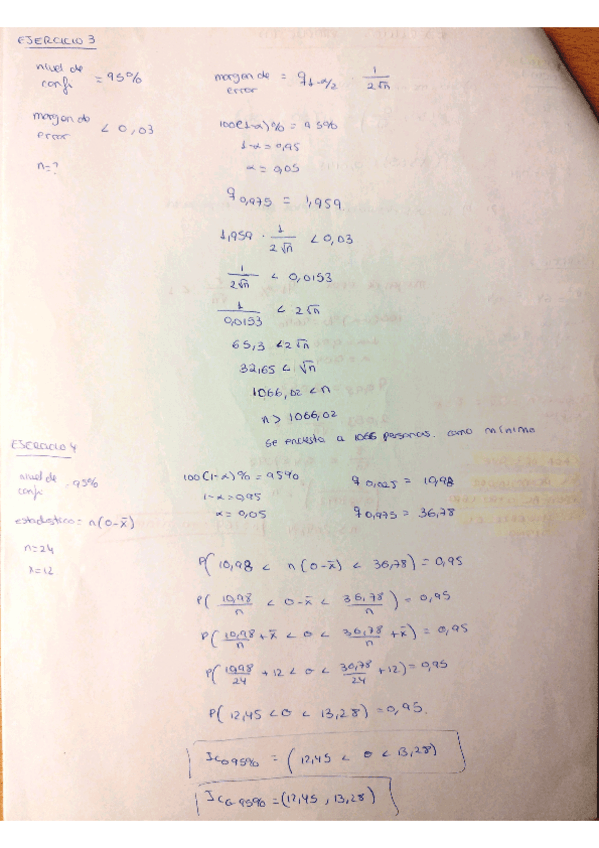 EJERCICIO 3
nivel de confi = 95%
margen de error = q_{1-α/2} · 1/(2√n)
margen de error < 0,03
100(1-α)% = 95%
1-α = 0,95
n = ?
α = 0,05
q_{0,975} = 1,959
1,959 · 1/(2√n) < 0,03
1/(2√n) < 0,0153
1/0,0153 < 2√n
65,3 < 2√n
32,65 < √n
1066,02 < n
n > 1066,02
se encuesta a 1066 personas. como mínimo
EJERCICIO 4
nivel de confi = 95%
100(1-α)% = 95%
q_{0,025} = 10,98
1-α = 0,95
α = 0,05
q_{0,975} = 36,78
estadístico = n(θ-x̄)
n = 24
x = 12
P(10,98 < n(θ-x̄) < 36,78) = 0,95
P(10,98/n < θ-x̄ < 36,78/n) = 0,95
P(10,98/n + x̄ < θ < 36,78/n + x̄) = 0,95
P(10,98/24 + 12 < θ < 36,78/24 + 12) = 0,95
P(12,45 < θ < 13,28) = 0,95.
IC_θ 95% = (12,45 < θ < 13,28)
IC_θ 95% = (12,45 , 13,28)